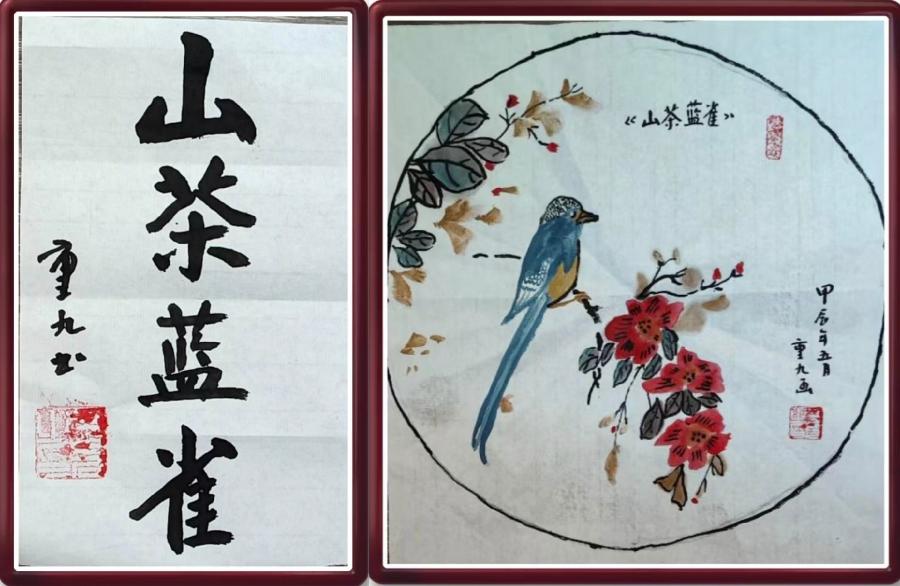 山茶蓝雀
重九书
《山茶蓝雀》
甲辰年五月
重九画